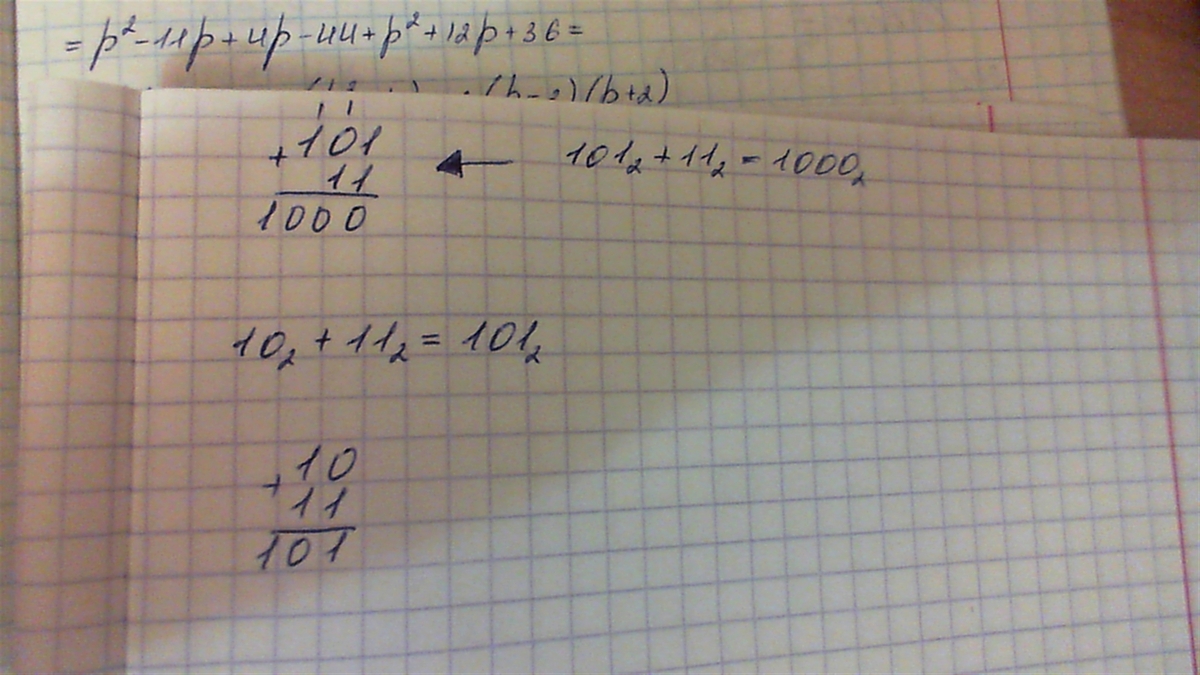 = p² - 11p + 4p - 44 + p² + 12p + 36 =
(b+2)
1 1
+ 101 ← 101₂ + 11₂ = 1000₂
11
1000
10₂ + 11₂ = 101₂
+ 10
11
101